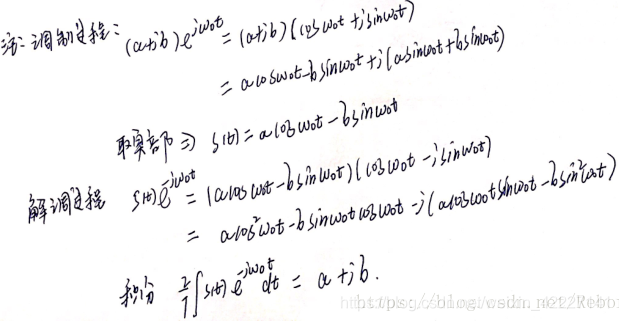 注：调制过程：(a+jb)e^{jw₀t} = (a+jb)(cosw₀t+jsinw₀t)
= acosw₀t-bsinw₀t+j(asinw₀t+bsinw₀t)
取实部 ⇒ s(t) = acosw₀t-bsinw₀t
解调过程 s(t)e^{-jw₀t} = (acosw₀t-bsinw₀t)(cosw₀t-jsinw₀t)
= acos²w₀t-bsinw₀tcosw₀t-j(acosw₀tsinw₀t-bsin²w₀t)
积分 2/T∫s(t)e^{-jw₀t}dt = a+jb.